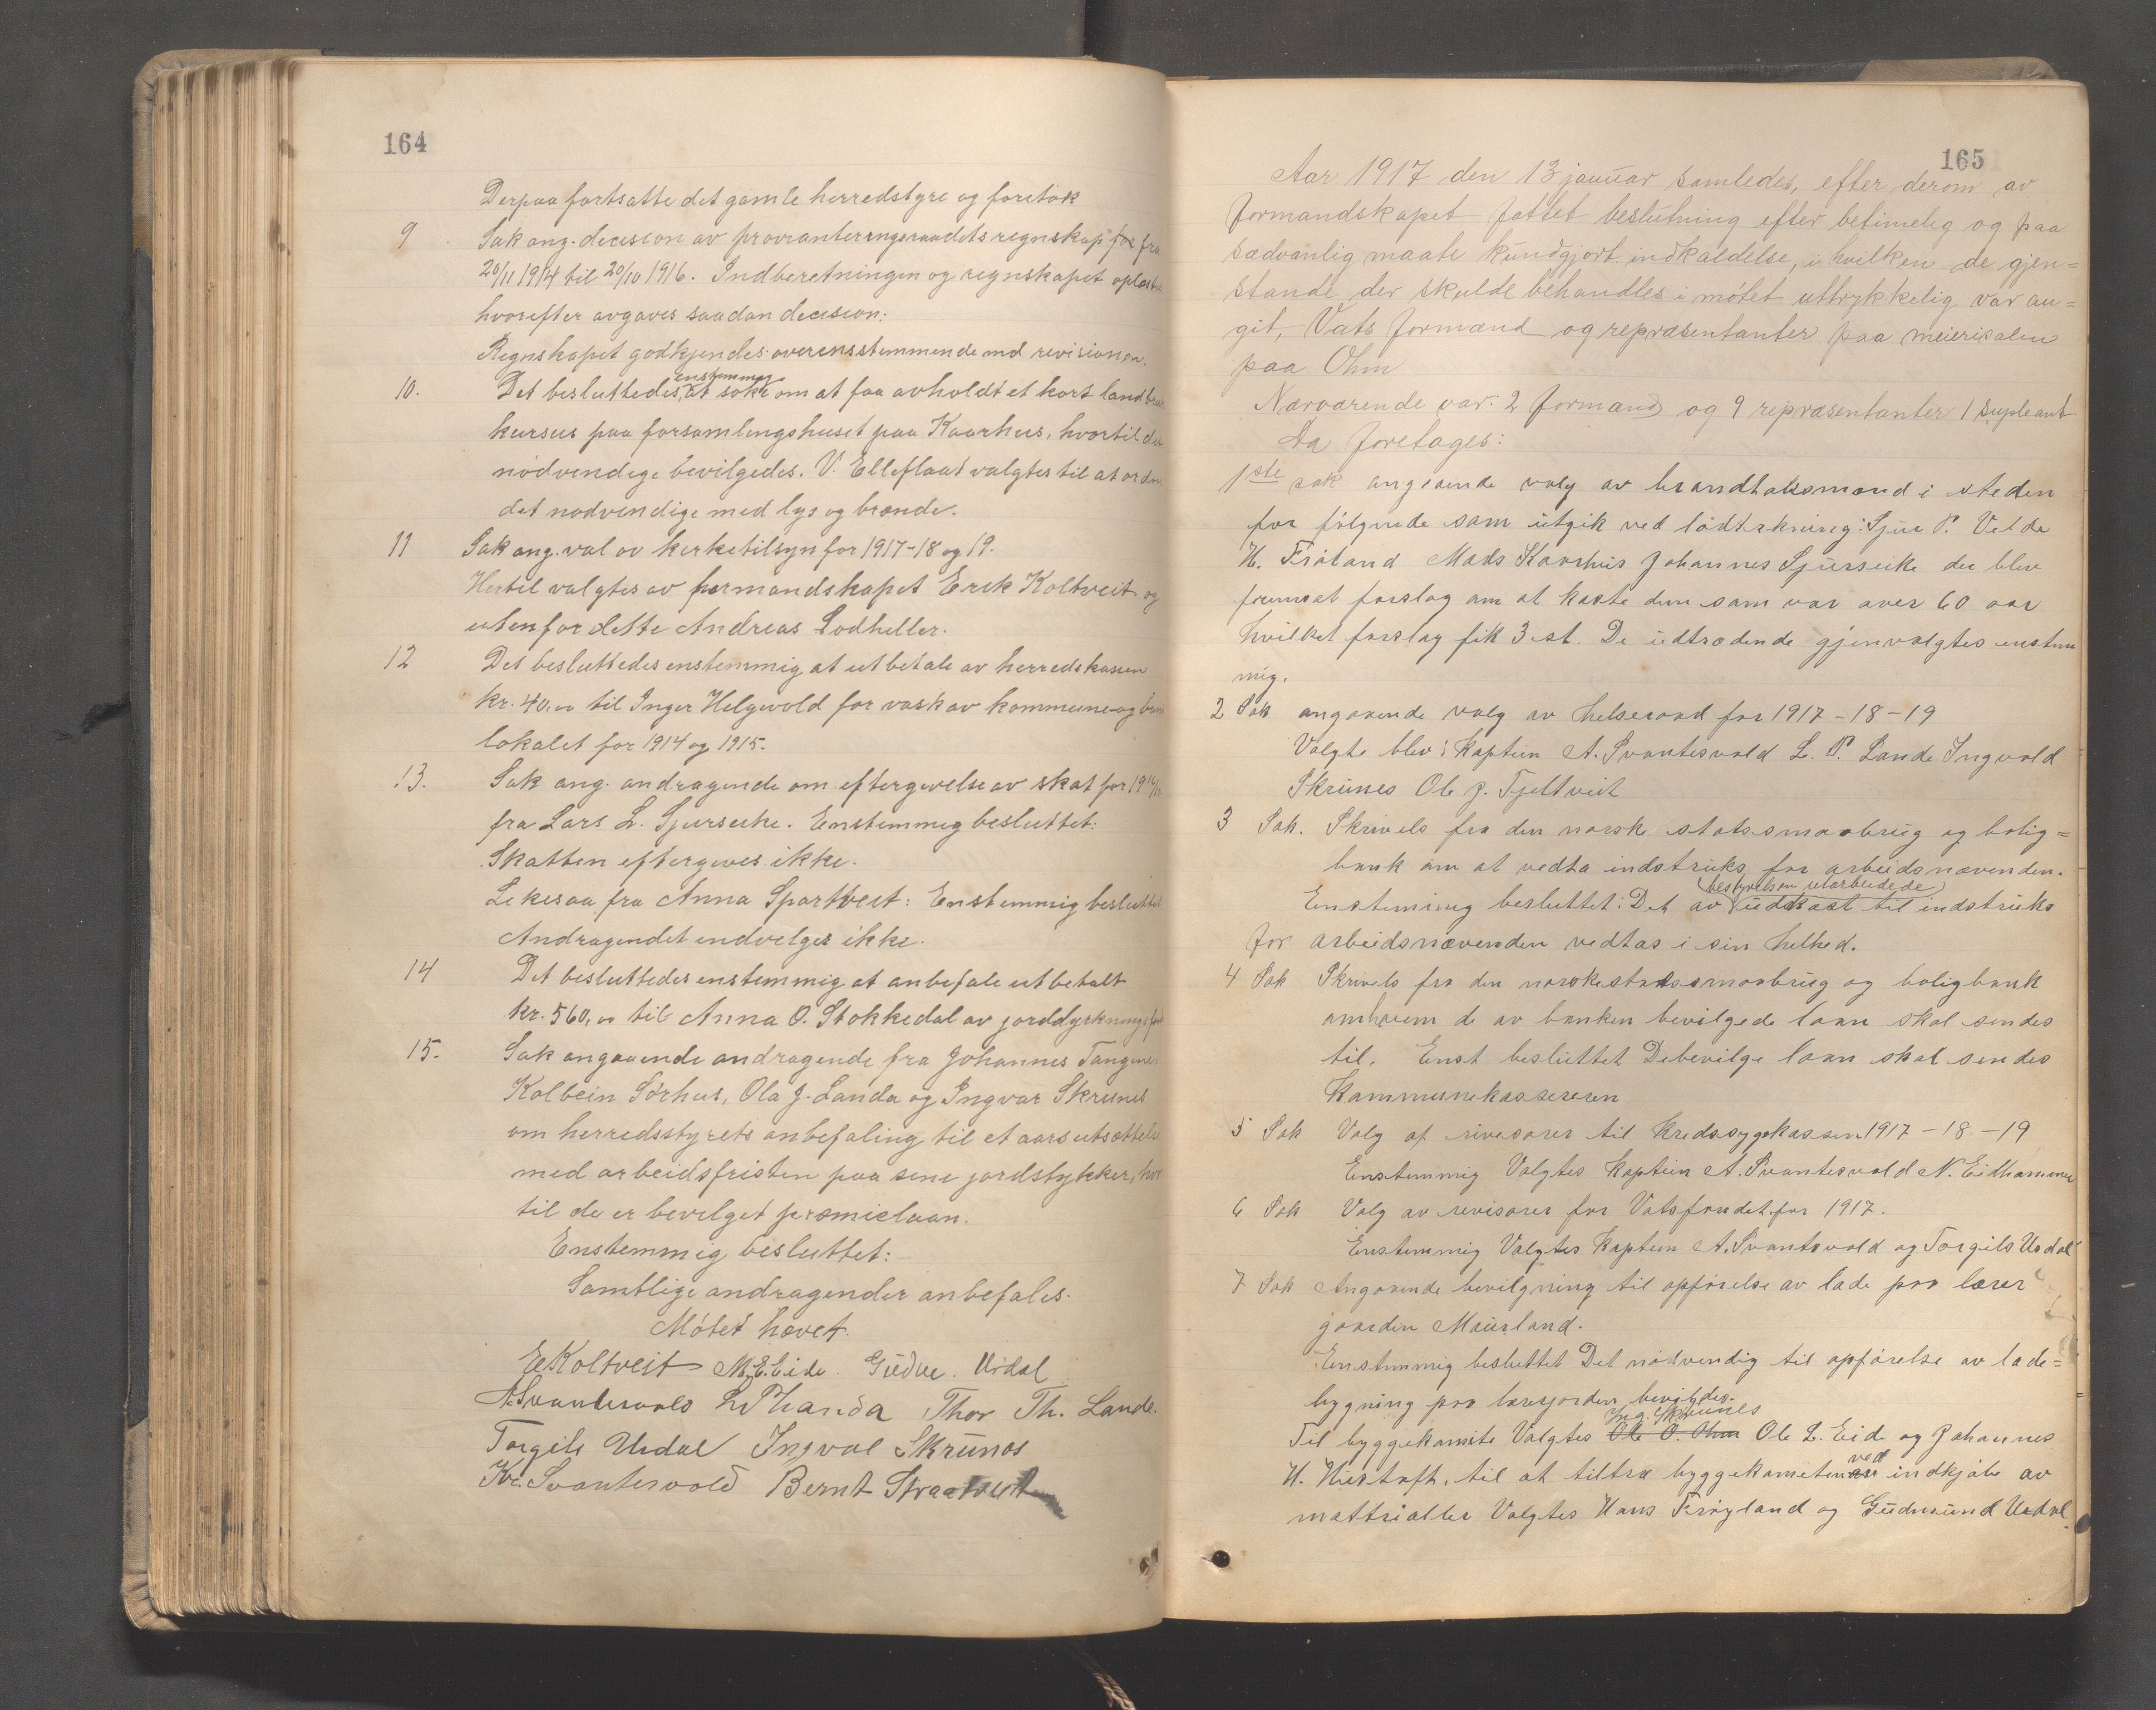 164
Derpaa fortsatte det gamle herredstyre og foretok
9 Sak ang. decision av provianteringsraadets regnskap for fra
20/11 1914 til 20/10 1916. Indberetningen og regnskapet oplæst
hvorefter avgaves saadan decision:
Regnskapet godkjendes overensstemmende med revisionen.
enstemmig
10. Det besluttedes, at søke om at faa avholdt et kort landbruk
kursus paa forsamlingshuset paa Kaarhus, hvortil det
nødvendige bevilgedes. V. Elleflaat valgtes til at ordne
det nødvendige med lys og brænde.
11 Sak ang. val av kirketilsyn for 1917-18 og 19.
Hertil valgtes av formandskapet Erik Koltveit og
utenfor dette Andreas Lodheller.
12 Det besluttedes enstemmig at utbetale av herredskassen
kr. 40.00 til Inger Helgevold for vask av kommune- og
lokalet for 1914 og 1915.
13. Sak ang. andragende om eftergivelse av skat for
fra Lars L. Sjurseike. Enstemmig besluttet:
Skatten eftergives ikke.
Likesaa fra Anna Spartveit: Enstemmig besluttet
Andragendet indvelges ikke.
14 Det besluttedes enstemmig at anbefale utbetalt
kr. 560,00 til Anna O. Stokkedal av jorddyrkningsfond
15. Sak angaaende andragende fra Johannes Tangene
Kolbein Sørhus, Ola J. Landa og Ingvar Skrunes
om herredsstyrets anbefaling til et aars utsættelse
med arbeidsfristen paa sine jordstykker, hvor
til de er bevilget præmielaan.
Enstemmig besluttet:
Samtlige andragender anbefales.
Møtet hævet.
E Koltveit M. E. Eide. Gudm. Urdal
A. Svantesvold L P Landa Thor Th. Lande.
Torgils Urdal Ingval Skrunes
Kr. Svantesvold Bernt Straatveit
165
Aar 1917 den 13 januar samledes, efter derom av
formandskapet fattet beslutning efter betimelig og paa
sædvanlig maate kundgjort indkaldelse, i hvilken de gjen=
stande der skulde behandles i møtet uttrykkelig var an=
git, Vats formænd og repræsentanter paa meierisalen
paa Ohm
Nærværende var: 2 formænd og 9 repræsentanter 1 supleant
Da foretages:
1ste sak angaaende valg av brandtaksmænd i steden
for følgende som utgik ved lodtrekning: Sjur P. Velde
H. Frøland Mads Kaarhus Johannes Sjurseike der blev
fremsat forslag om at kaste dem som var over 60 aar
hvilket forslag fik 3 st. De udtrædende gjenvalgtes enstem
mig.
2 Sak angaaende valg av helseraad for 1917-18-19
Valgte blev: Kaptein A. Svantesvold L. P. Lande Ingvald
Skrunes Ole J. Fjeltveit
3 Sak. Skrivels fra den norske statssmaabrug og bolig=
bank om at vedta indstruks for arbeidsnævenden.
bestyrelsen utarbeidede
Enstemmig besluttet: Det av udkast til indstruks
for arbeidsnævenden vedtas i sin helhed.
4 Sak Skrivels fra den norske statssmaabrug og boligbank
om hvem de av banken bevilgede laan skal sendes
til. Enst besluttet De bevilge laan skal sendes
Kommunekassereren
5 Sak Valg af rivesorer til Kredssygekassen 1917-18-19
Enstemmig Valgtes Kaptein A. Svantesvold N. Eikhammer
6 Sak Valg av revisorer for Vatsfondet for 1917.
Enstemmig Valgtes Kaptein A. Svantsvold og Torgils Urdal
7 Sak Angaaende bevilgning til opførelse av lade paa lærer
gaarden Mausland.
Enstemmig besluttet Det nødvendig til opførelse av lade=
bygning paa lærerjorden bevilgdes.
Ing. Skrunes
Til byggekomite Valgtes Ole O. Ohm Ole L. Eide og Johannes
H. Hustoft. til at tiltræ byggekometen ved indkjøbe av
mattrialler Valgtes Hans Frøyland og Gudmund Urdal.